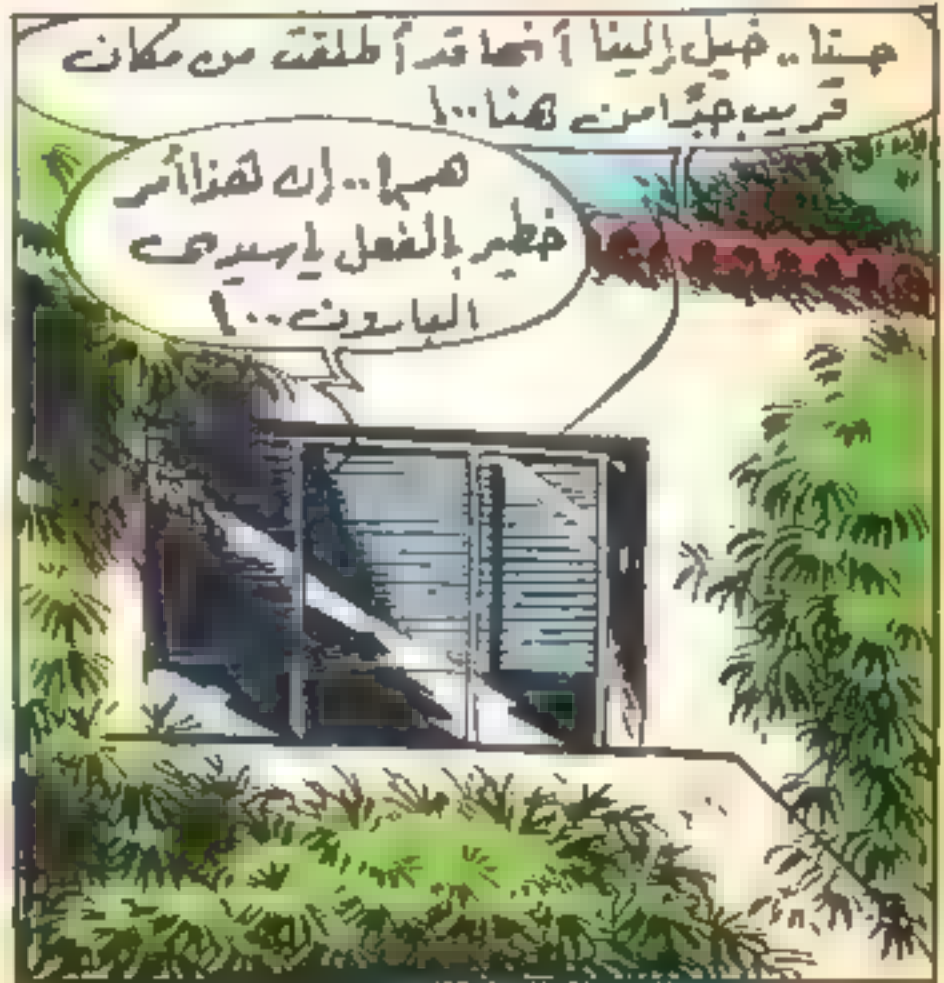 حسنًا.. خيل إلينا أنها قد أطلقت من مكان
قريب جدًا من هنا..!
همم!.. إن هذا أمر
خطير بالفعل يا سيدى
البارون..!